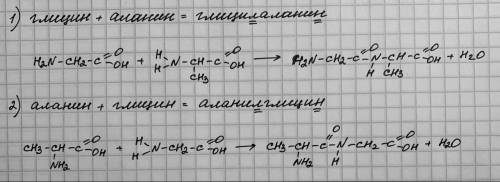 1) глицин + аланин = глицилаланин
H₂N-CH₂-C(=O)OH + H₂N-CH(CH₃)-C(=O)OH ⟶ H₂N-CH₂-C(=O)-N(H)-CH(CH₃)-C(=O)OH + H₂O
2) аланин + глицин = аланилглицин
CH₃-CH(NH₂)-C(=O)OH + H₂N-CH₂-C(=O)OH ⟶ CH₃-CH(NH₂)-C(=O)-N(H)-CH₂-C(=O)OH + H₂O